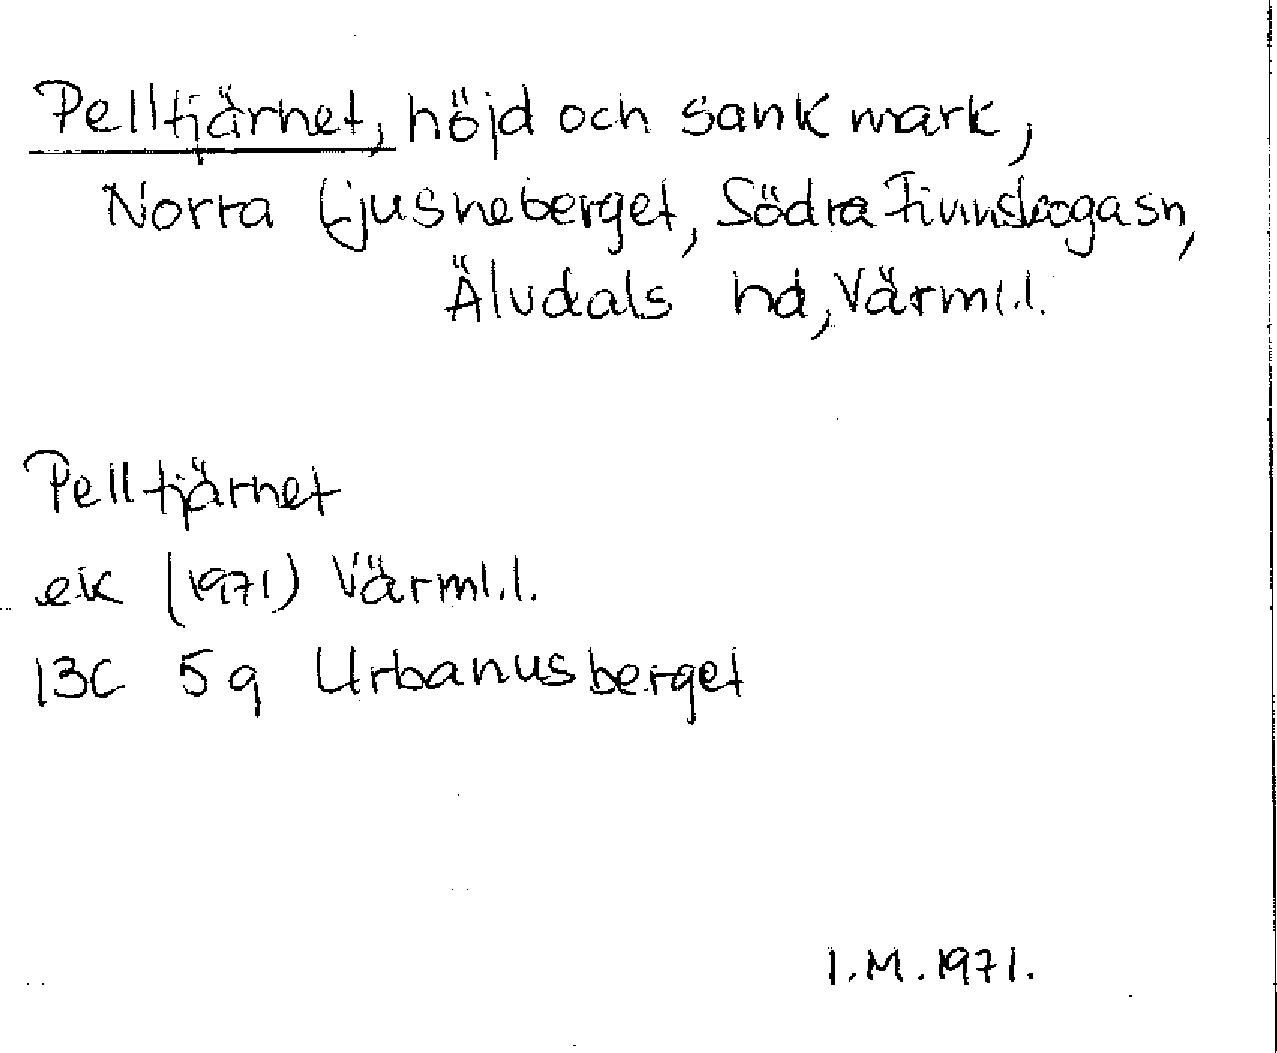 Pelltjärnet, höjd och sank mark,
Norra Ljusneberget, Södra Finnskogasn,
Älvdals hd, Värml.l.
Pelltjärnet
ek (1971) Värml.l.
13C 5q Urbanusberget
I.M. 1971.